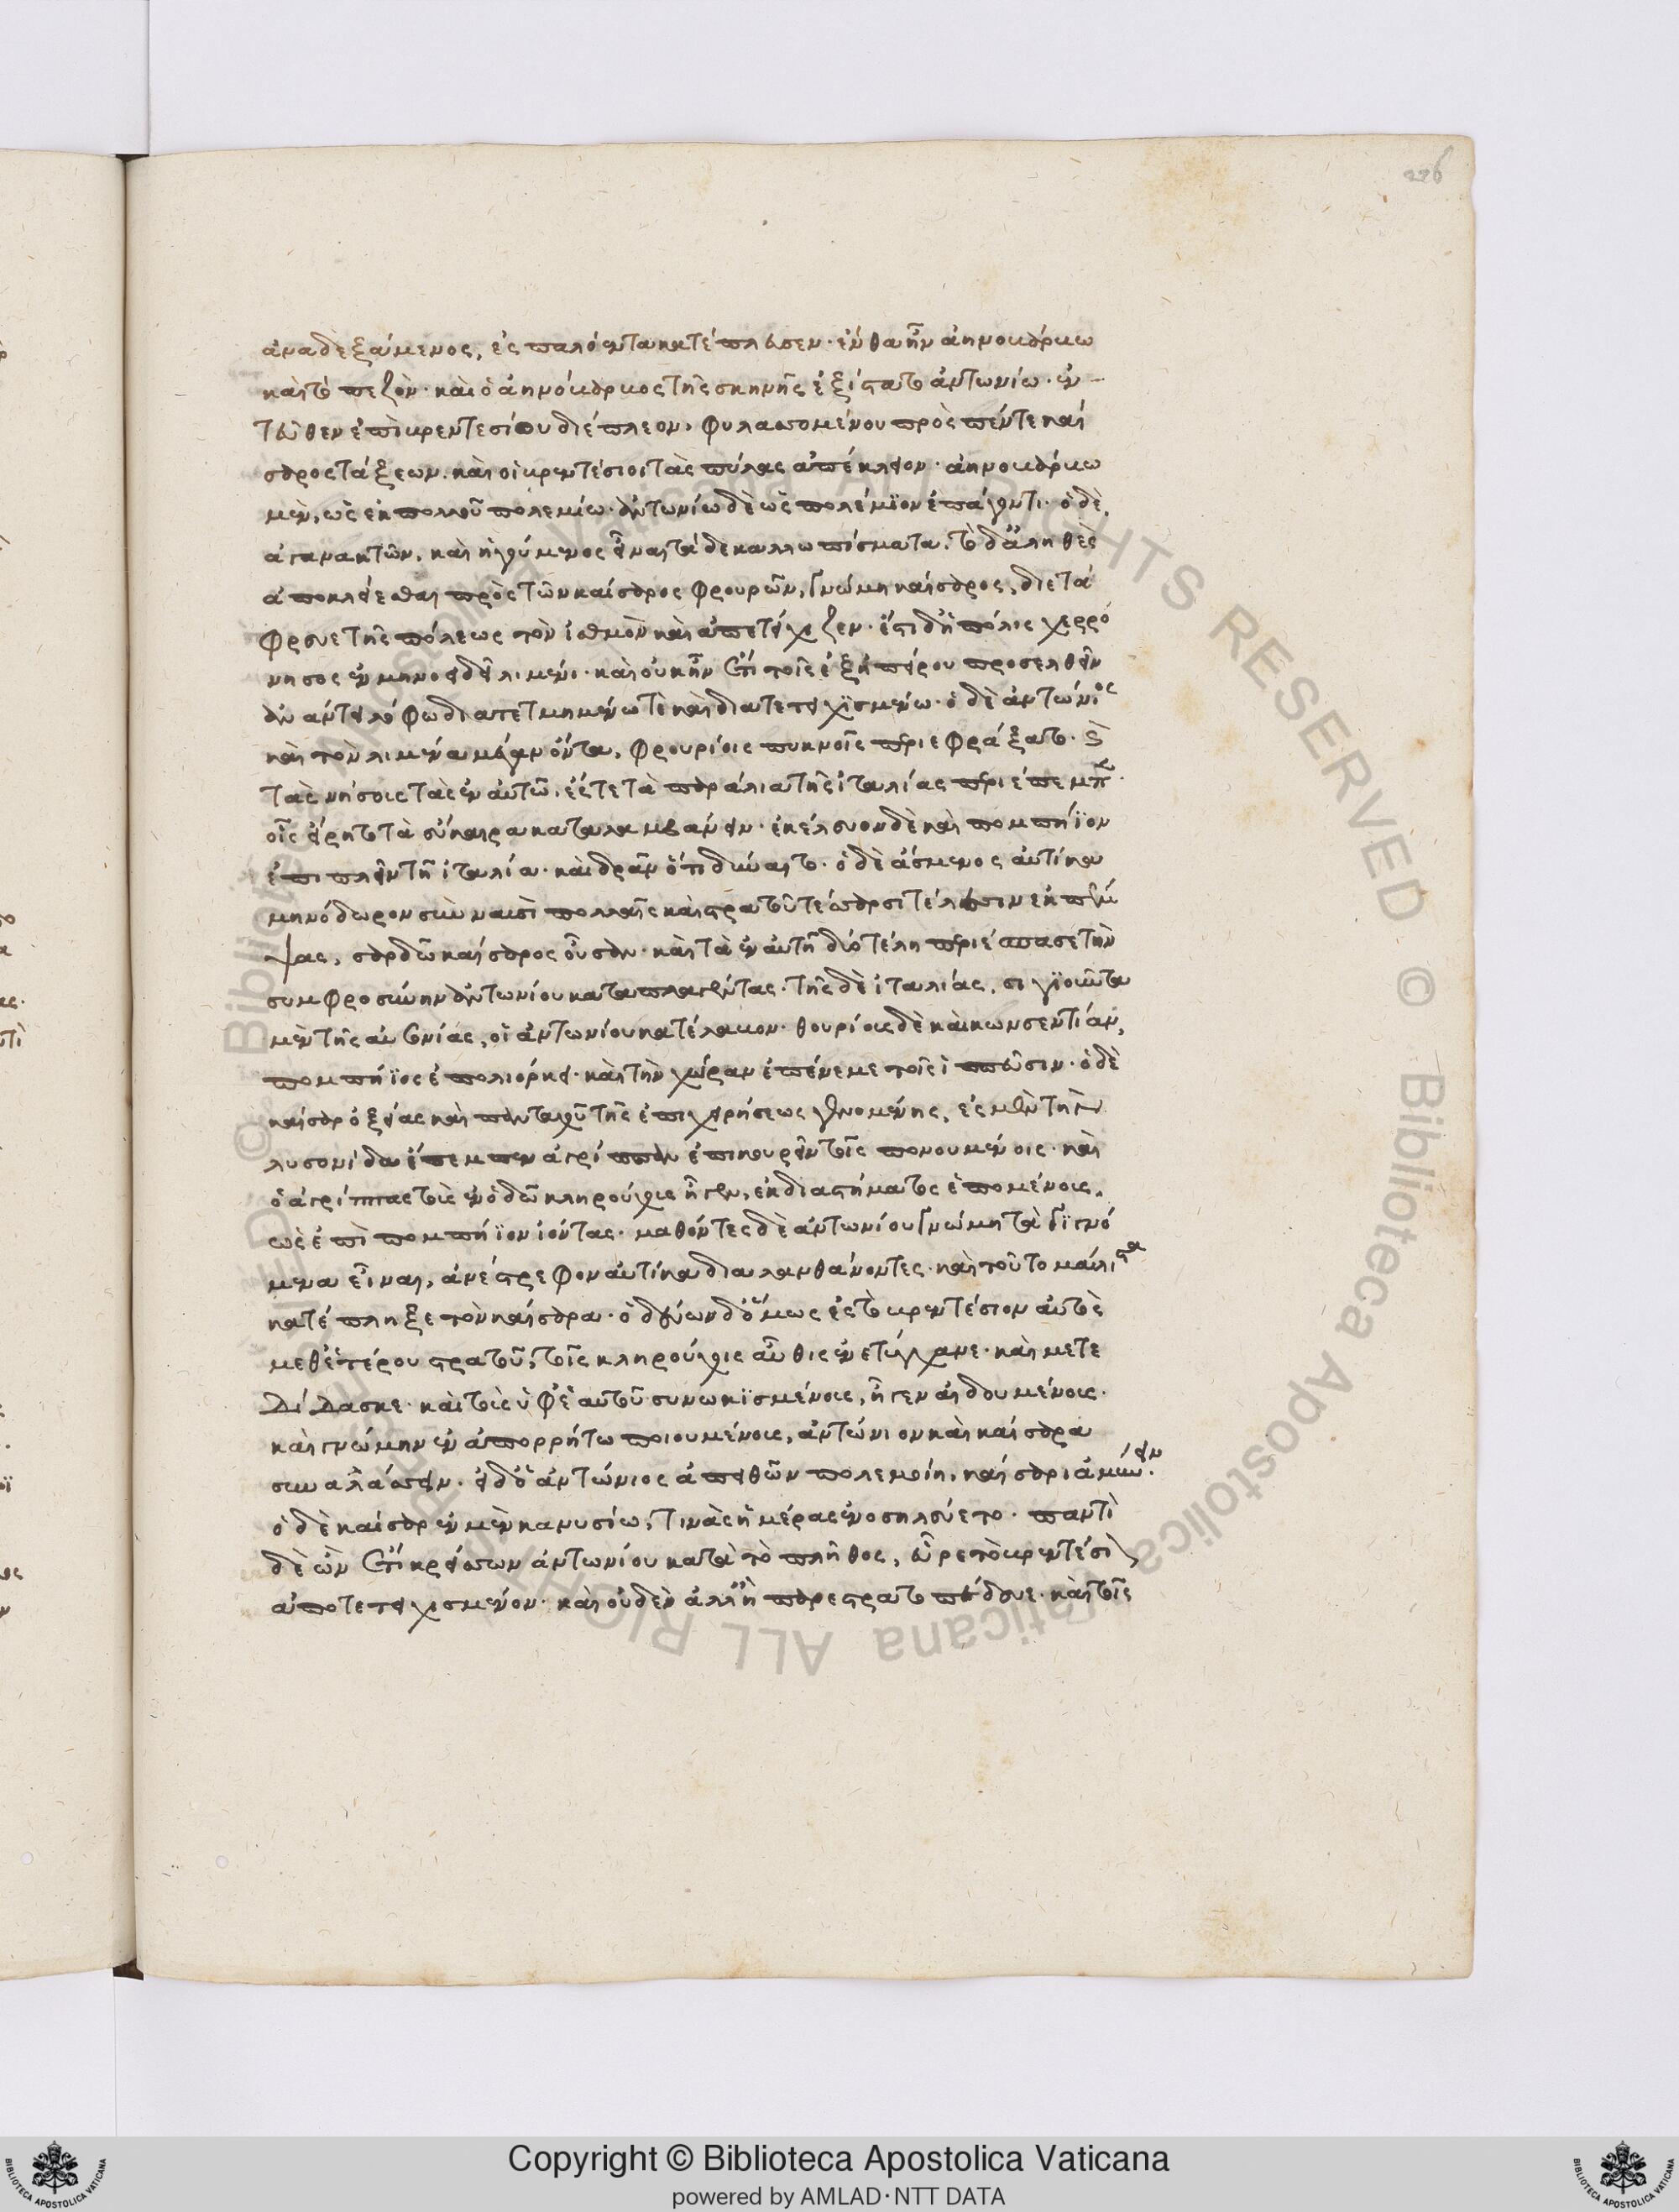 226
ἀναδεξάμενος, ἐς παλόεντα κατέπλευσεν· ἔνθα ἦν ἀηνοβάρβω
καὶ τὸ πεζὸν· καὶ ὁ ἀηνόβαρβος τῆς σκηνῆς ἐξίστατο ἀντωνίω· ἐν
τεῦθεν ἐπὶ βρεντεσίου διέπλεον, φυλασσομένου πρὸς πέντε καί
σαρος τάξεων. καὶ οἱ βρεντέσιοι τὰς πύλας ἀπέκλειον· ἀηνοβάρβω
μὲν, ὡς ἐκ πολλοῦ πολεμίω· ἀντωνίω δὲ ὡς πολέμϊον ἐπάγοντι· ὁ δὲ,
ἀγανακτῶν, καὶ ἡγούμενος εἶναι τάδε καλλωπίσματα, τὸ δ' ἀληθὲς
ἀποκλείεσθαι πρὸς τῶν καίσαρος φρουρῶν, γνώμη καίσαρος, διετά
φρευε τῆς πόλεως τὸν ἰσθμὸν καὶ ἀπετείχιζεν· ἔστι δ' ἡ πόλις χερρό
νησος ἐν μηνοειδεῖ λιμένι· καὶ οὐκ ἦν ἔτι τοῖς ἐξ ἠπείρου προσελθεῖν
ἀνάντει λόφω διατετμημένω τὲ καὶ διατετειχϊσμένω· ὁ δὲ ἀντώνιος
καὶ τὸν λιμένα μέγαν ὄντα, φρουρίοις πυκνοῖς περιεφράξατο· καὶ
τὰς νήσους τὰς ἐν αὐτῶ. ἔς τε τὰ παράλια τῆς ἰταλίας περιέπεμπεν·
οἷς εἴρητο τὰ εὔκαιρα καταλαμβάνειν· ἐκέλευον δὲ καὶ πομπήϊον
ἐπιπλεῖν τῆ ἰταλία· καὶ δρᾶν ὅτι δύναιτο· ὁ δὲ ἄσμενος αὐτίκα
μηνόδωρον σὺν ναυσὶ πολλαῖς καὶ στρατοῦ τέσσαρσι τέλεσιν ἐκπέμ
ψας, σαρδὼ καίσαρος οὖσαν· καὶ τὰ ἐν αὐτῆ δύο τέλη περιέσπασε τὴν
συμφροσύνην ἀντωνίου καταπλαγέντας· τῆς δὲ ἰταλίας, σιγϊοῦντα
μὲν τῆς αὐσονίας, οἱ ἀντωνίου κατέλαβον· θουρίους δὲ καὶ κωνσεντίαν,
πομπήϊος ἐπολιόρκει· καὶ τὴν χώραν ἐπένεμε τοῖς ἱππεῦσιν· ὁ δὲ
καίσαρ ὀξείας καὶ πανταχοῦ τῆς ἐπιχειρήσεως γινομένης, ἐς μὲν τὴν
αὐσονίδα ἔπεμπεν ἀγρίππαν ἐπικουρεῖν τοῖς πονουμένοις· καὶ
ὁ ἀγρίππας τοὺς ἐν ὁδῶ κληρούχους ἦγεν, ἐκ διαστήματος ἑπομένους,
ὡς ἐπὶ πομπήϊον ἰόντας· μαθόντες δὲ ἀντωνίου γνώμη τὰ γϊγνό
μενα εἶναι, ἀνέστρεφον αὐτίκα διαλανθάνοντες· καὶ τοῦτο μάλιστα
κατέπληξε τὸν καίσαρα· ὁδεύων δ' ὅμως ἐς τὸ βρεντέσιον αὐτὸς
μεθ' ἑτέρου στρατοῦ, τοῖς κληρούχοις αὖθις ἐνετύγχανε· καὶ μετε
δίδασκε· καὶ τοὺς ὑφ' ἑαυτοῦ συνωκϊσμένους, ἦγεν αἰδουμένους·
καὶ γνώμην ἐν ἀπορρήτω ποιουμένους, ἀντώνιον καὶ καίσαρα
συναλλάσσειν. εἰ δ' ὁ ἀντώνιος ἀπειθῶν πολεμοίη, καίσαρι ἀμύνειν·
ὁ δὲ καίσαρ ἐν μὲν κανυσίω, τινὰς ἡμέρας ἐνοσηλεύετο· παντὶ
δὲ ὢν ἔτι κρείσσων ἀντωνίου κατὰ τὸ πλῆθος, εὗρε τὸ βρεντέσιον
ἀποτετειχισμένον· καὶ οὐδὲν ἀλλ' ἢ παρεστρατοπέδευε· καὶ τοῖς
Copyright © Biblioteca Apostolica Vaticana
powered by AMLAD·NTT DATA